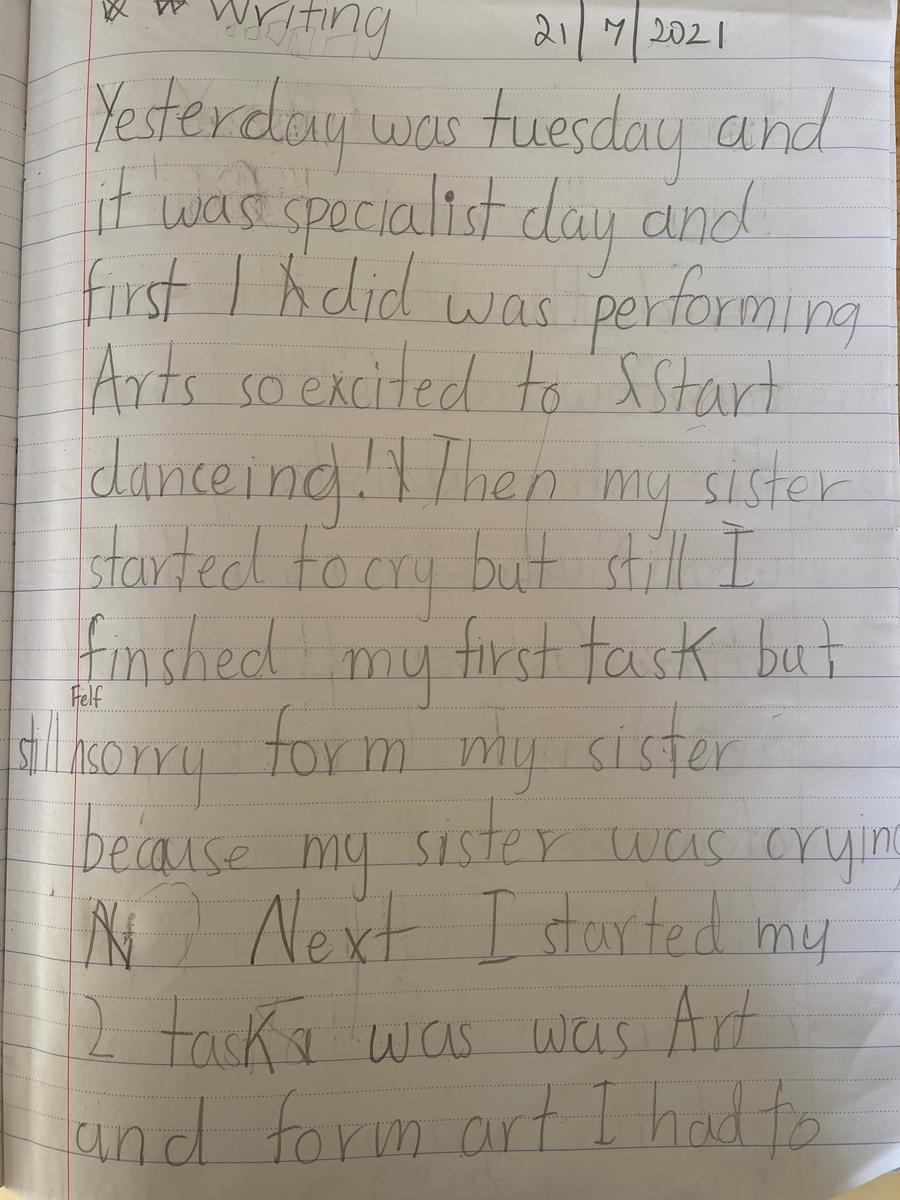 Writing 21/7/2021
Yesterday was tuesday and
it was specialist day and
first I did was performing
Arts so excited to Start
danceing! Then my sister
started to cry but still I
finshed my first task but
Felt
still sorry form my sister
because my sister was crying
Next I started my
2 task was was Art
and form art I had to